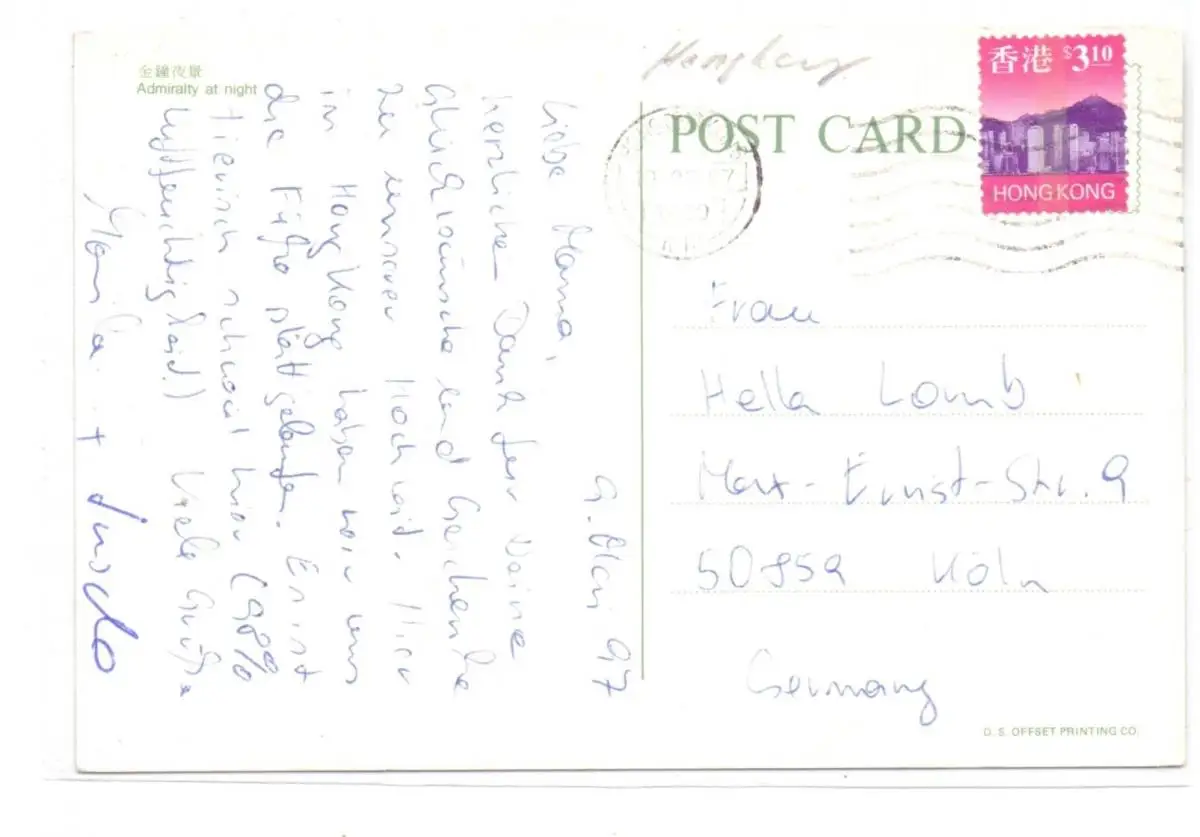 金鐘夜景
Admiralty at night
9. Mai 97
Liebe Mama,
herzlichen Dank für Deine
Glückwünsche und Geschenke
zu unserer Hochzeit. Hier
in Hong Kong haben wir uns
die Füße platt gelaufen. Es ist
tierisch schwül hier (98%
Luftfeuchtigkeit) Viele Grüße
+
Hongkong
POST CARD
香港 $3.10
HONG KONG
Frau
Hella Lomb
Max-Ernst-Str. 9
50859 Köln
Germany
D. S. OFFSET PRINTING CO.